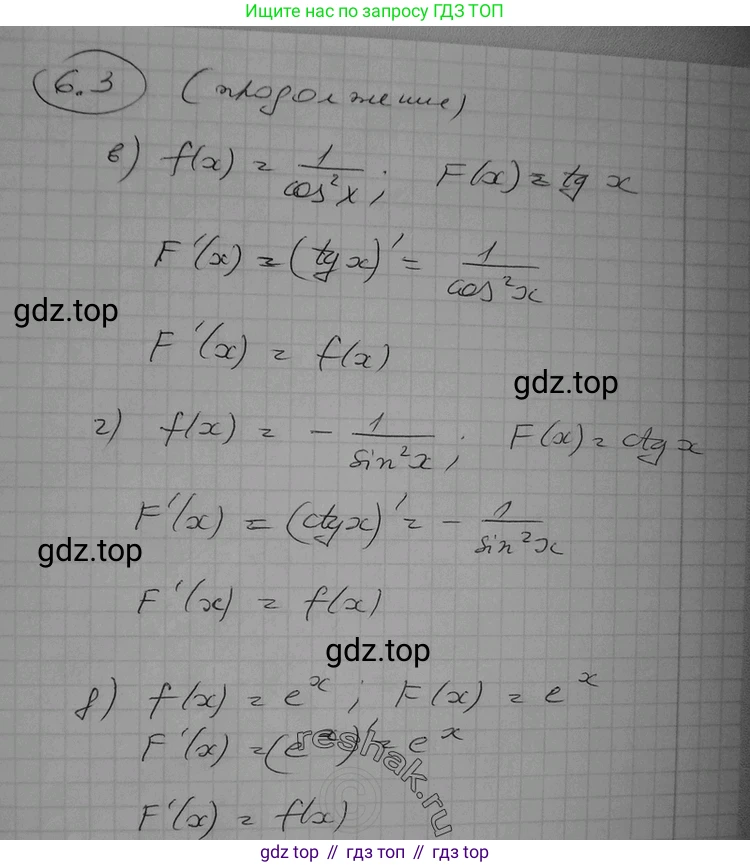 Ищите нас по запросу ГДЗ ТОП
6.3 (продолжение)
в) f(x) = 1/cos²x; F(x) = tg x
F'(x) = (tg x)' = 1/cos²x
gdz.top
F'(x) = f(x)
gdz.top
г) f(x) = - 1/sin²x; F(x) = ctg x
F'(x) = (ctg x)' = - 1/sin²x
gdz.top
F'(x) = f(x)
gdz.top
д) f(x) = eˣ; F(x) = eˣ
F'(x) = (eˣ)' = eˣ
reshak.ru
F'(x) = f(x)
gdz топ // гдз топ // gdz.top